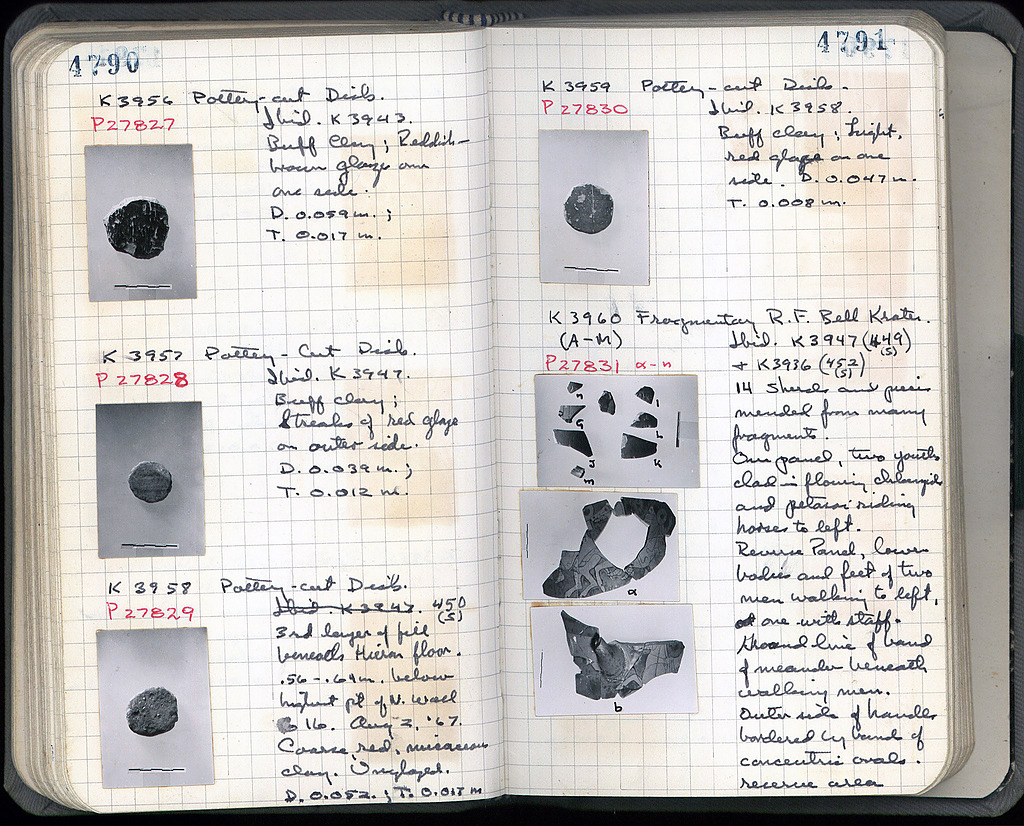 4790
K 3956 Pottery-cut Disk.
P27827
Ibid. K 3943.
Buff Clay; Reddish-
brown glaze on
one side.
D. 0.059 m.;
T. 0.017 m.
K 3957 Pottery-Cut Disk.
P 27828
Ibid. K 3947.
Buff clay;
Streaks of red glaze
on outer side.
D. 0.039 m.;
T. 0.012 m.
K 3958 Pottery-cut Disk.
P27829
Ibid. K3947. 450
(S)
3rd layer of fill
beneath Hieron floor.
.56-.64m. below
highest pt of N. wall
16. Aug 2, '67.
Coarse, red, micaceous
clay. Unglazed.
D. 0.052.; T. 0.017 m
4791
K 3959 Pottery-cut Disk.
P 27830
Ibid. K 3958.
Buff clay; Light,
red glaze on one
side. D. 0.047 m.
T. 0.008 m.
K 3960 Fragmentary R.F. Bell Krater.
(A-M)
P27831 a-n
Ibid. K3947 (449)
(S)
+ K3936 (452)
(S)
14 Sherds and pieces
mended from many
fragments.
One panel, two youths
clad in flowing chlamyds
and petasoi riding
horses to left.
Reverse Panel, lower
bodies and feet of two
men walking to left,
one with staff.
Ground line of band
of meander beneath
walking men.
Outer side of handles
bordered by band of
concentric ovals.
reserve area
n
i
g
L
j
k
m
a
b